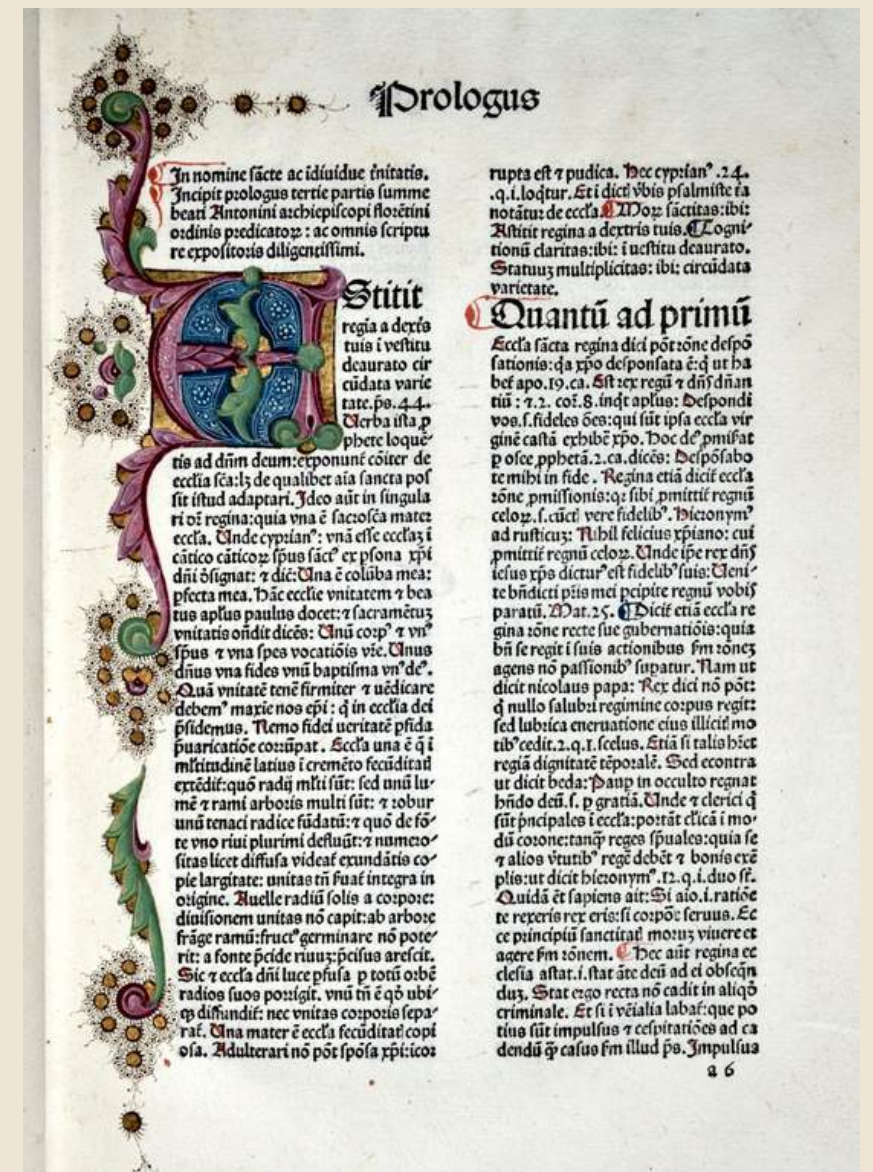 Prologus
In nomine sācte ac īdiuidue t̄nitatis.
Incipit prologus tertie partis summe
beati Antonini archiepiscopi florētini
ordinis predicatoꝝ : ac omnis scriptu
re expositoris diligentissimi.
Stitit
regīa a dext̄s
tuis ī vestitu
deaurato cir
cūdata varie
tate.p̄s.44.
Verba ista ꝓ
phete loquē⸗
tis ad dn̄m deum:exponunt̄ cōiter de
ecclīa scā:lꝫ de qualibet aīa sancta pos
sit istud adaptari. Ideo aūt in singula
ri dr̄ regina:quia vna ē sacroscā mater
eccła. Unde cyprianꝰ: vnā esse eccłaꝫ ī
cātico cāticoꝝ sp̄us sāctꝰ ex p̄sona xp̄i
dn̄i d̄signat: ⁊ dic̄: Una ē colūba mea:
ꝑfecta mea. Hāc ecclīe vnitatem ⁊ bea
tus apl̄us paulus docet: ⁊ sacramētuꝫ
vnitatis on̄dit dicēs: Unū corpꝰ ⁊ vnꝰ
sp̄us ⁊ vna spes vocatiōis vr̄e. Unus
dn̄us vna fides vnū baptisma vnꝰ deꝰ.
Quā vnitatē tenē firmiter ⁊ uēdicare
debemꝰ maxie nos ep̄i : q̄ in ecclīa dei
p̄sidemus. Nemo fidei ueritatē ꝑfida
p̄uaricatiōe corrūpat. Eccła una ē q̄ ī
ml̄titudinē latius ī cremēto fecūditat̄
extēdit̄:quō radij ml̄ti sūt: sed unū lu⸗
mē ⁊ rami arboris multi sūt: ⁊ robur
unū tenaci radice fūdatū:⁊ quō de fō⸗
te vno riui plurimi defluūt:⁊ numero⸗
sitas licet diffusa videat̄ exundātis co⸗
pie largitate: unitas tn̄ ẜuat̄ integra in
origine. Auelle radiū solis a corpore:
diuisionem unitas nō capit:ab arbore
frāge ramū:fructꝰ germinare nō pote⸗
rit: a fonte p̄cide riuuꝫ:p̄cisus arescit.
Sic ⁊ eccła dn̄i luce ꝑfusa ꝑ totū orbē
radios suos porrigit. vnū tn̄ ē qd̄ ubi⸗
qꝫ diffundit̄: nec vnitas corporis sepa⸗
rat̄. Una mater ē eccła fecūditat̄ copi
osa. Adulterari nō pōt spōsa xp̄i:icor
rupta est ⁊ pudica. Hec cyprianꝰ .24.
.q.i.loqt̄ur. Et ī dict̄ v̄bis psalmiste t̄a
notātur de eccła. Moꝝ sāctitas:ibi:
Astitit regina a dextris tuis. Cogni⸗
tionū claritas:ibi: ī uestitu deaurato.
Statuuꝫ multiplicitas: ibi: circūdata
varietate.
Quantū ad primū
Eccła sācta regina dici pōt rōne despō
sationis:qa xp̄o desponsata ē:q̄ ut ha
bet̄ apo.19.ca. Est rex regū ⁊ dn̄s dn̄an
tiū : ⁊.2. cor̄.8.inqt apl̄us: Despondi
vos.s.fideles ōes:qui sūt ipsa eccła vir
ginē castā exhibē xp̄o. Hoc deꝰ ꝓmiẜat
ꝑ osee ꝓphetā.2.ca.dicēs: Despōsabo
te mihi in fide . Regina etiā dicit̄ eccła
rōne ꝓmissionis:qꝛ sibi ꝓmittit̄ regnū
celoꝝ.s.cūct̄ vere fidelibꝰ. Hieronymꝰ
ad rusticuꝫ: Nihil felicius xp̄iano: cui
ꝓmittit̄ regnū celoꝝ. Unde ip̄e rex dn̄s
iesus xp̄s dicturꝰ est fidelibꝰ suis: Ueni⸗
te bn̄dicti p̄ris mei ꝑcipite regnū vobis
paratū. Mat.25. Dicit̄ etiā eccła re
gina rōne recte sue gubernatiōis:quia
bn̄ se regit ī suis actionibus ẜm rōneꝫ
agens nō passionibꝰ suꝑatur. Nam ut
dicit nicolaus papa: Rex dici nō pōt:
q̄ nullo salubri regimine corpus regit:
sed lubrica eneruatione eius illicit̄ mo
tibꝰ cedit.2.q.1.scelus. Etiā si talis hr̄et
regiā dignitatē tēporalē. Sed econtra
ut dicit beda: Pauꝑ in occulto regnat
hn̄do deū.s. ꝑ gratiā. Unde ⁊ clerici q̄
sūt p̄ncipales ī eccła:portāt cl̄icā ī mo⸗
dū corone:tanqꝫ reges sp̄uales:quia se
⁊ alios v̄tutibꝰ regē debēt ⁊ bonis exē
plis:ut dicit hieronymꝰ.12.q.i.duo st̄.
Quidā ēt sapiens ait: Si aīo.i.ratiōe
te rexeris rex eris:si corpōe seruus. Ec
ce principiū sanctitat̄ moruꝫ viuere et
agere ẜm rōnem. Hec aūt regina ec
clesia astat.i.stat āte deū ad ei obseqn̄
duꝫ. Stat ergo recta nō cadit in aliqō
criminale. Et si ī vēialia labat̄:que po
tius sūt impulsus ⁊ cespitatiōes ad ca
dendū qꝫ casus ẜm illud p̄s. Impulsus
a 6